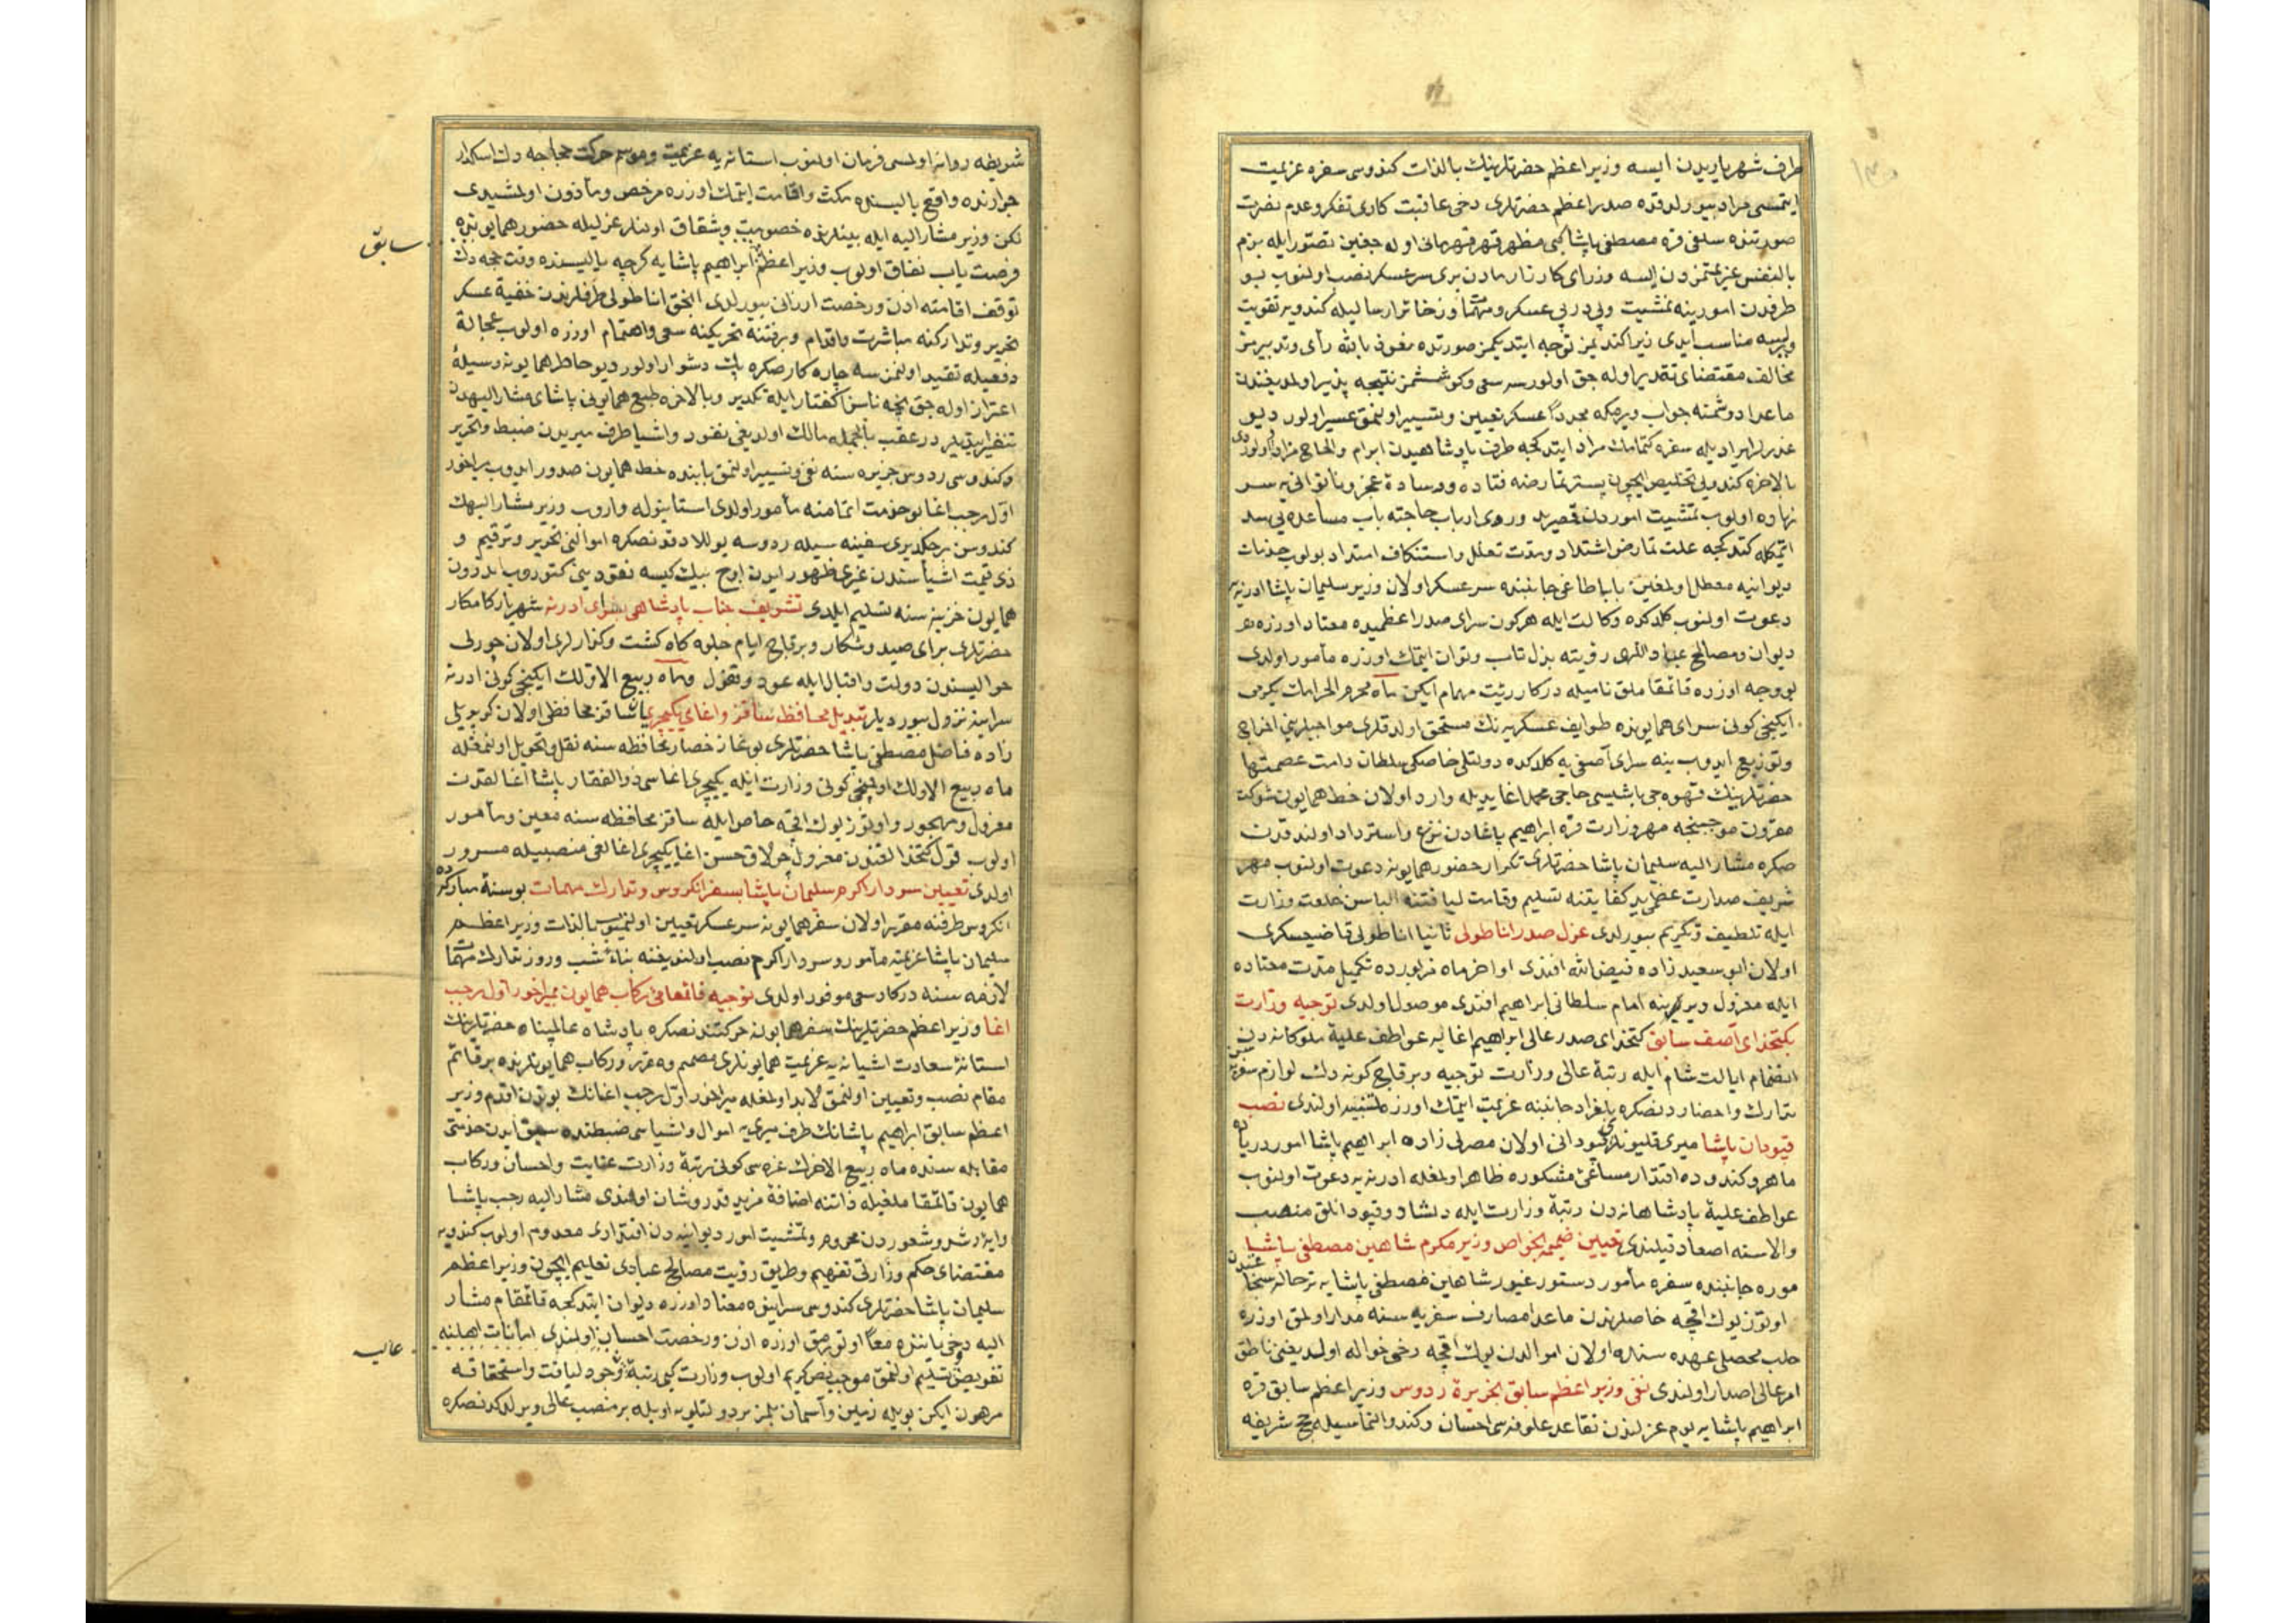 طرف شهریاریدن ایسه وزیر اعظم حضرتلرینك بالذات كندوسی سفره عزیمت
ایتمسی مراد بیورلدقده صدر اعظم حضرتلری دخی عاقبت كاری تفكر و عدم نصرت
صورتنده سلفی قره مصطفی پاشا كبی مظهر قهر قهرمانی اوله جغین تصور ایله بزم
بالنفس عزیمتمزدن ایسه وزرای كارگذارماندن بری سرعسكر نصب اولنوب بو
طرفدن امورینه تمشیت و پی در پی عسكر و مهمات و ذخائر ارسالیله كندویه تقویت
ویرلسه مناسب ایدی زیرا كندیمز توجه ایتدیكمز صورتده معوذ بالله رأی و تدبیرمز
مخالف مقتضای تقدیر اوله جق اولورسه سعی و كوششمز نتیجه پذیر اولمدیغندن
ماعدا دوشمنه جواب ویرمكه مجددا عسكر تعیین و تسییر اولنمق عسیر اولور دیو
عذرلر ایراد یله سفره كتمامك مراد ایتدكجه طرف پادشاهیدن ابرام و الحاح مزداد اولوردی
بالاخره كندویی تخلیص ایچون بستر تمارضه فتاده و وساده عجز و ناتوانی یه سر
نهاده اولوب تمشیت اموردن قصر ید و روی ارباب حاجته باب مساعده یی سد
اتمكله كتدكجه علت تمارض اشتداد و مدت تعلل و استنكاف امتداد بولوب خدمات
دیوانیه معطل اولمغین باباطاغی جانبنده سرعسكر اولان وزیر سلیمان پاشا ادرنه یه
دعوت اولنوب كلدكده وكالت ایله هركون سرای صدر اعظمیده معتاد اوزره عقد
دیوان و مصالح عباد اللهی رؤیته بذل تاب و توان ایتمك اوزره مأمور اولدی
بو وجه اوزره قائمقاملق نامیله دركار رؤیت مهام ایكن ماه محرم الحرامك یكرمی
ایكنجی كونی سرای همایونده طوایف عسكریه نك مستحق اولدقلری مواجبلرینی اخراج
و توزیع ایدوب ینه سرای آصفی یه كلدكده دولتلی خاصكی سلطان دامت عصمتها
حضرتلرینك قهوه جی باشیسی حاجی محمد اغا یدیله وارد اولان خط همایون شوكت
مقرون موجبنجه مهر وزارت قره ابراهیم پاشادن نزع و استرداد اولندقدن
صكره مشار الیه سلیمان پاشا حضرتلری تكرار حضور همایونه دعوت اولنوب مهر
شریف صدارت عظمی ید كفایتنه تسلیم و قامت لیاقتنه الباس خلعت وزارت
ایله تلطیف و تكریم بیورلدی عزل صدر اناطولی ثانیا اناطولی قاضیعسكری
اولان ابو سعید زاده فیض الله افندی اواخر ماه مزبورده تكمیل مدت معتاده
ایله معزول و یرلرینه امام سلطانی ابراهیم افندی موصول اولدی توجیه وزارت
بكتخدای آصف سابق كتخدای صدر عالی ابراهیم اغا یه عواطف علیه ملوكانه دن
انضمام ایالت شام ایله رتبه عالی وزارت توجیه و بر قاچ كونه دك لوازم سفرین
تدارك و احضاردنصكره بغداد جانبنه عزیمت ایتمك اوزره تنبیه اولندی نصب
قپودان پاشا میری قلیونلری قپودانی اولان مصرلی زاده ابراهیم پاشا امور دریاده
ماهر و كندوده اقتدار مساعی مشكوره ظاهر اولمغله ادرنه یه دعوت اولنوب
عواطف علیه پادشاهانه دن رتبه وزارت ایله دلشاد و قپودانلق منصب
والاسنه اصعاد قیلندی تعیین ضمیمه الخواص وزیر مكرم شاهین مصطفی پاشا
موره جانبنده سفره مأمور دستور غیور شاهین مصطفی پاشا یه ترحاله سنجاغندن
اوتوز یوك اقچه خاصلرندن ماعدا مصارف سفریه سنه مدار اولمق اوزره
حلب محصلی عهده سنده اولان اموالدن یوك اقچه دخی حواله اولدیغنی ناطق
امر عالی اصدار اولندی نفی وزیر اعظم سابق بجزیره ردوس وزیر اعظم سابق قره
ابراهیم پاشا یه یوم عزلندن تقاعد علوفه سی احسان و كندو التماسیله حج شریفه
شریطه روانه اولمسی فرمان اولنوب استانه یه عزیمت و موسم حركت حجاجه دك اسكدار
جوارنده واقع یالیسنده مكث و اقامت ایتمك اوزره مرخص و مأذون اولمشیدی
لكن وزیر مشار الیه ایله بینلرنده خصومت و شقاق اولنلر عزلیله حضور همایونده
فرصت یاب نفاق اولوب وزیر اعظم ابراهیم پاشا یه كرچه یالیسنده وقت حجه دك
سابق
توقف و اقامته اذن و رخصت ارزانی بیورلدی انجق اناطولی طرفلرندن خفیة عسكر
تحریر و تداركنه مباشرت و اقدام و بر فتنه تحریكینه سعی و اهتمام اوزره اولوب عجالة
دفعیله تقید اولنمزسه چاره كار صكره پك دشوار اولور دیو خاطر همایونه وسیله
اغترار اوله جق نیجه ناسزا كفتار ایله تكدیر و بالاخره طبع همایونی پاشای مشار الیهدن
تنفیر ایتدیلر در عقب بالجمله مالك اولدیغی نقود و اشیا طرف میریدن ضبط و تحریر
و كندوسی ردوس جزیره سنه نفی و تسییر اولنمق بابنده خط همایون صدور ایدوب میراخور
اول رجب اغا بو خدمت اتمامنه مأمور اولدی استانبوله واروب وزیر مشار الیهك
كندوسن بر چكدیری سفینه سیله ردوسه یوللادقدنصكره اموالنی تحریر و ترقیم و
ذی قیمت اشیاسندن غیری ظهور ایدن اوچ بیك كیسه نقودینی كتوروب اندرون
همایون خزینه سنه تسلیم ایلدی تشریف جناب پادشاهی بسرای ادرنه شهریار كامكار
حضرتلری برای صید و شكار و بر قاچ ایام جلوه كاه كشت و كذارلری اولان چورلی
حوالیسندن دولت و اقبال ایله عودو قفول و ماه ربیع الاولك ایكنجی كونی ادرنه
سراینه نزول بیوردیلر تبدیل محافظ ساقز و اغای یكیچری یاشا ساقز محافظی اولان كوپریلی
زاده فاضل مصطفی پاشا حضرتلری بوغاز حصار محافظه سنه نقل و تحویل اولنمغله
ماه ربیع الاولك اونبشنجی كونی وزارت ایله یكیچری اغاسی ذوالفقار پاشا اغالقدن
معزول و مهجور و اوتوز یوك اقچه خاص ایله ساقز محافظه سنه معین و مأمور
اولوب قول كتخدالغندن معزول چولاق حسن اغا یكیچری اغالغی منصبیله مسرور
اولدی تعیین سردار اكرم سلیمان پاشا بسفر انكروس و تدارك مهمات بو سنه مباركه ده
انكروس طرفنه مقرر اولان سفر همایونه سرعسكر تعیین اولنمیوب بالذات وزیر اعظم
سلیمان پاشا عزیمته مأمور و سردار اكرم نصب اولندیغنه بناء شب و روز تدارك مهمات
لازمه سنه دركار سعی موفور اولدی توجیه قائمقامی ركاب همایون بمیراخور اول رجب
اغا وزیر اعظم حضرتلرینك سفر همایونه حركتندنصكره پادشاه عالمپناه حضرتلرینك
استانه سعادت اشیانه یه عزیمت همایونلری مصمم و مقرر و ركاب همایونلرنده بر قائم
مقام نصب و تعیین اولنمق لابد اولمغله میراخور اول رجب اغانك بوندن اقدم وزیر
اعظم سابق ابراهیم پاشانك طرف میری یه اموال و اشیاسی ضبطنده سبق ایدن خدمتی
مقابله سنده ماه ربیع الاخرك غره سی كونی رتبه وزارت عنایت و احسان و ركاب
همایون قائمقاملغیله ذاتنه اضافه مزید قدر و شان اولندی مشار الیه رجب پاشا
وایه رشد و شعوردن محروم و تمشیت امور دیوانیه دن اقتداری معدوم اولوب كندویه
مقتضای حكم وزارتی تفهیم و طریق رؤیت مصالح عبادی تعلیم ایچون وزیر اعظم
سلیمان پاشا حضرتلری كندوسی سراینده معتاد اوزره دیوان ایتدكجه قائمقام مشار
الیه دخی یاننده معا اوتورمق اوزره اذن و رخصت احسان اولندی امانات اهلینه
عالیه
تفویض و تسلیم اولنمق موجب نص كریم اولوب وزارت كبی رتبه وجود لیاقت و استحقاقه
مرهون ایكن بویله زمین و آسمان بلمز بر دولتلویه اویله بر منصب عالی ویرلدكدنصكره